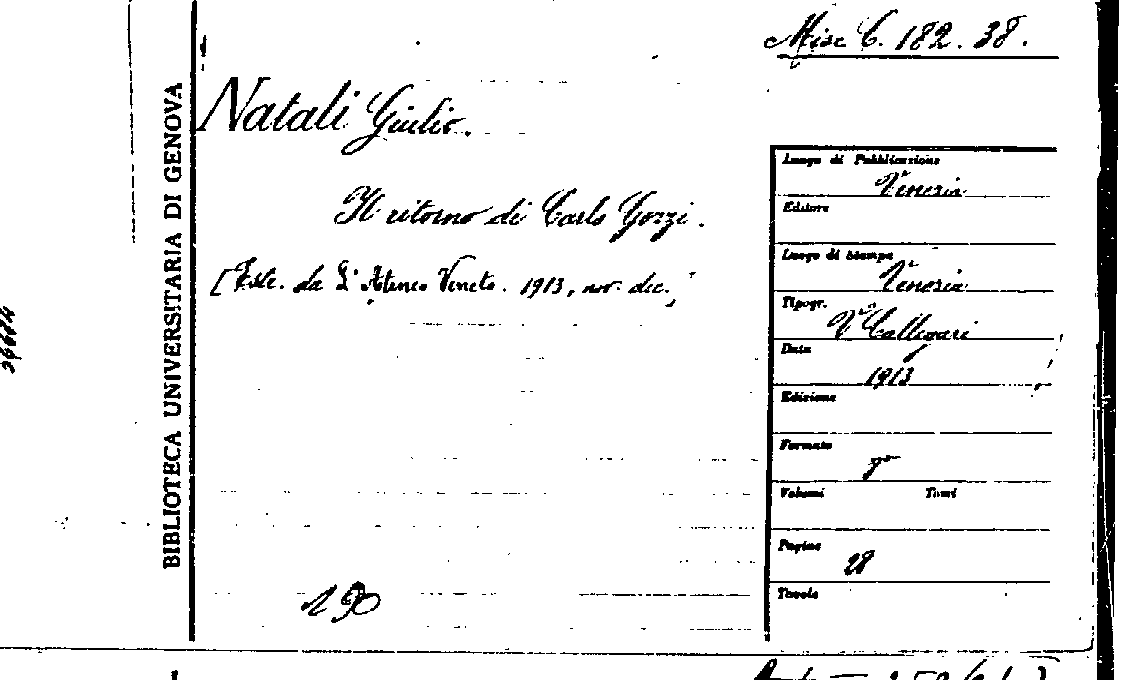 Misc C. 182. 38.
BIBLIOTECA UNIVERSITARIA DI GENOVA
Natali Giulio.
Il ritorno di Carlo Gozzi.
[Estr. da L'Ateneo Veneto. 1913, nov. dic.]
190
Luogo di Pubblicazione
Venezia
Editore
Luogo di Stampa
Venezia
Tipogr.
Callegari
Data
1913
Edizione
Formato
8°
Volumi Tomi
Pagine
28
Tavole